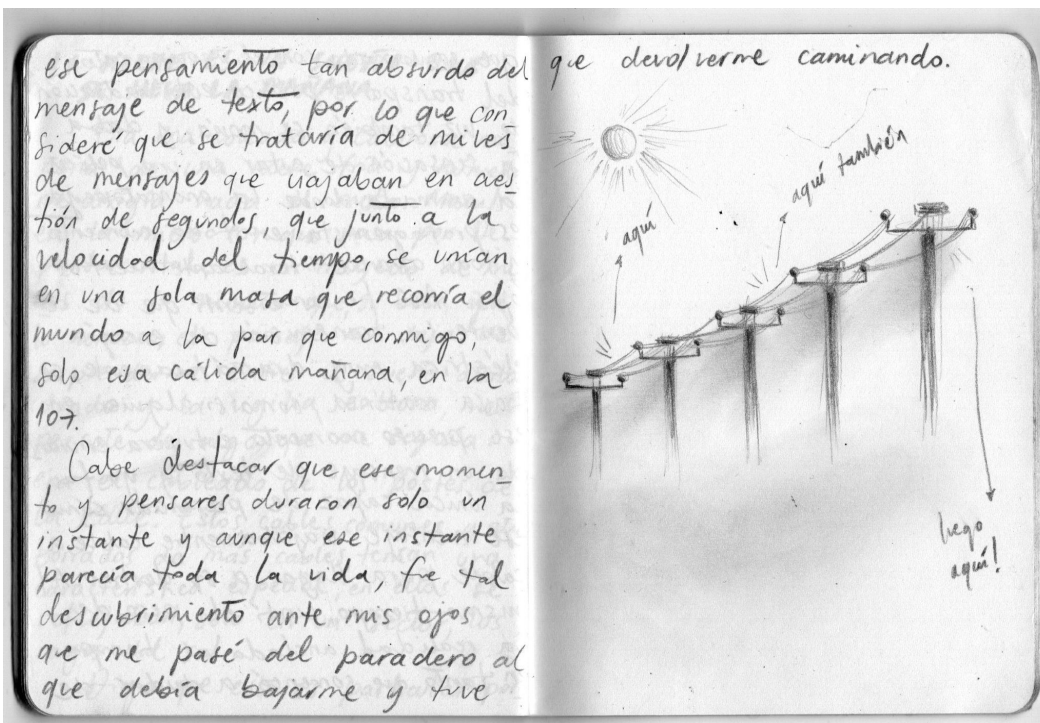 ese pensamiento tan absurdo del
mensaje de texto, por lo que con_
sideré que se trataría de miles
de mensajes que viajaban en aes_
tión de segundos, que junto a la
velocidad del tiempo, se unían
en una sola masa que recorría el
mundo a la par que conmigo,
solo esa cálida mañana, en la
107.
Cabe destacar que ese momen_
to y pensares duraron solo un
instante y aunque ese instante
parecía toda la vida, fue tal
descubrimiento ante mis ojos
que me pasé del paradero al
que debía bajarme y tuve
que devolverme caminando.
aquí
aquí también
luego
aquí!